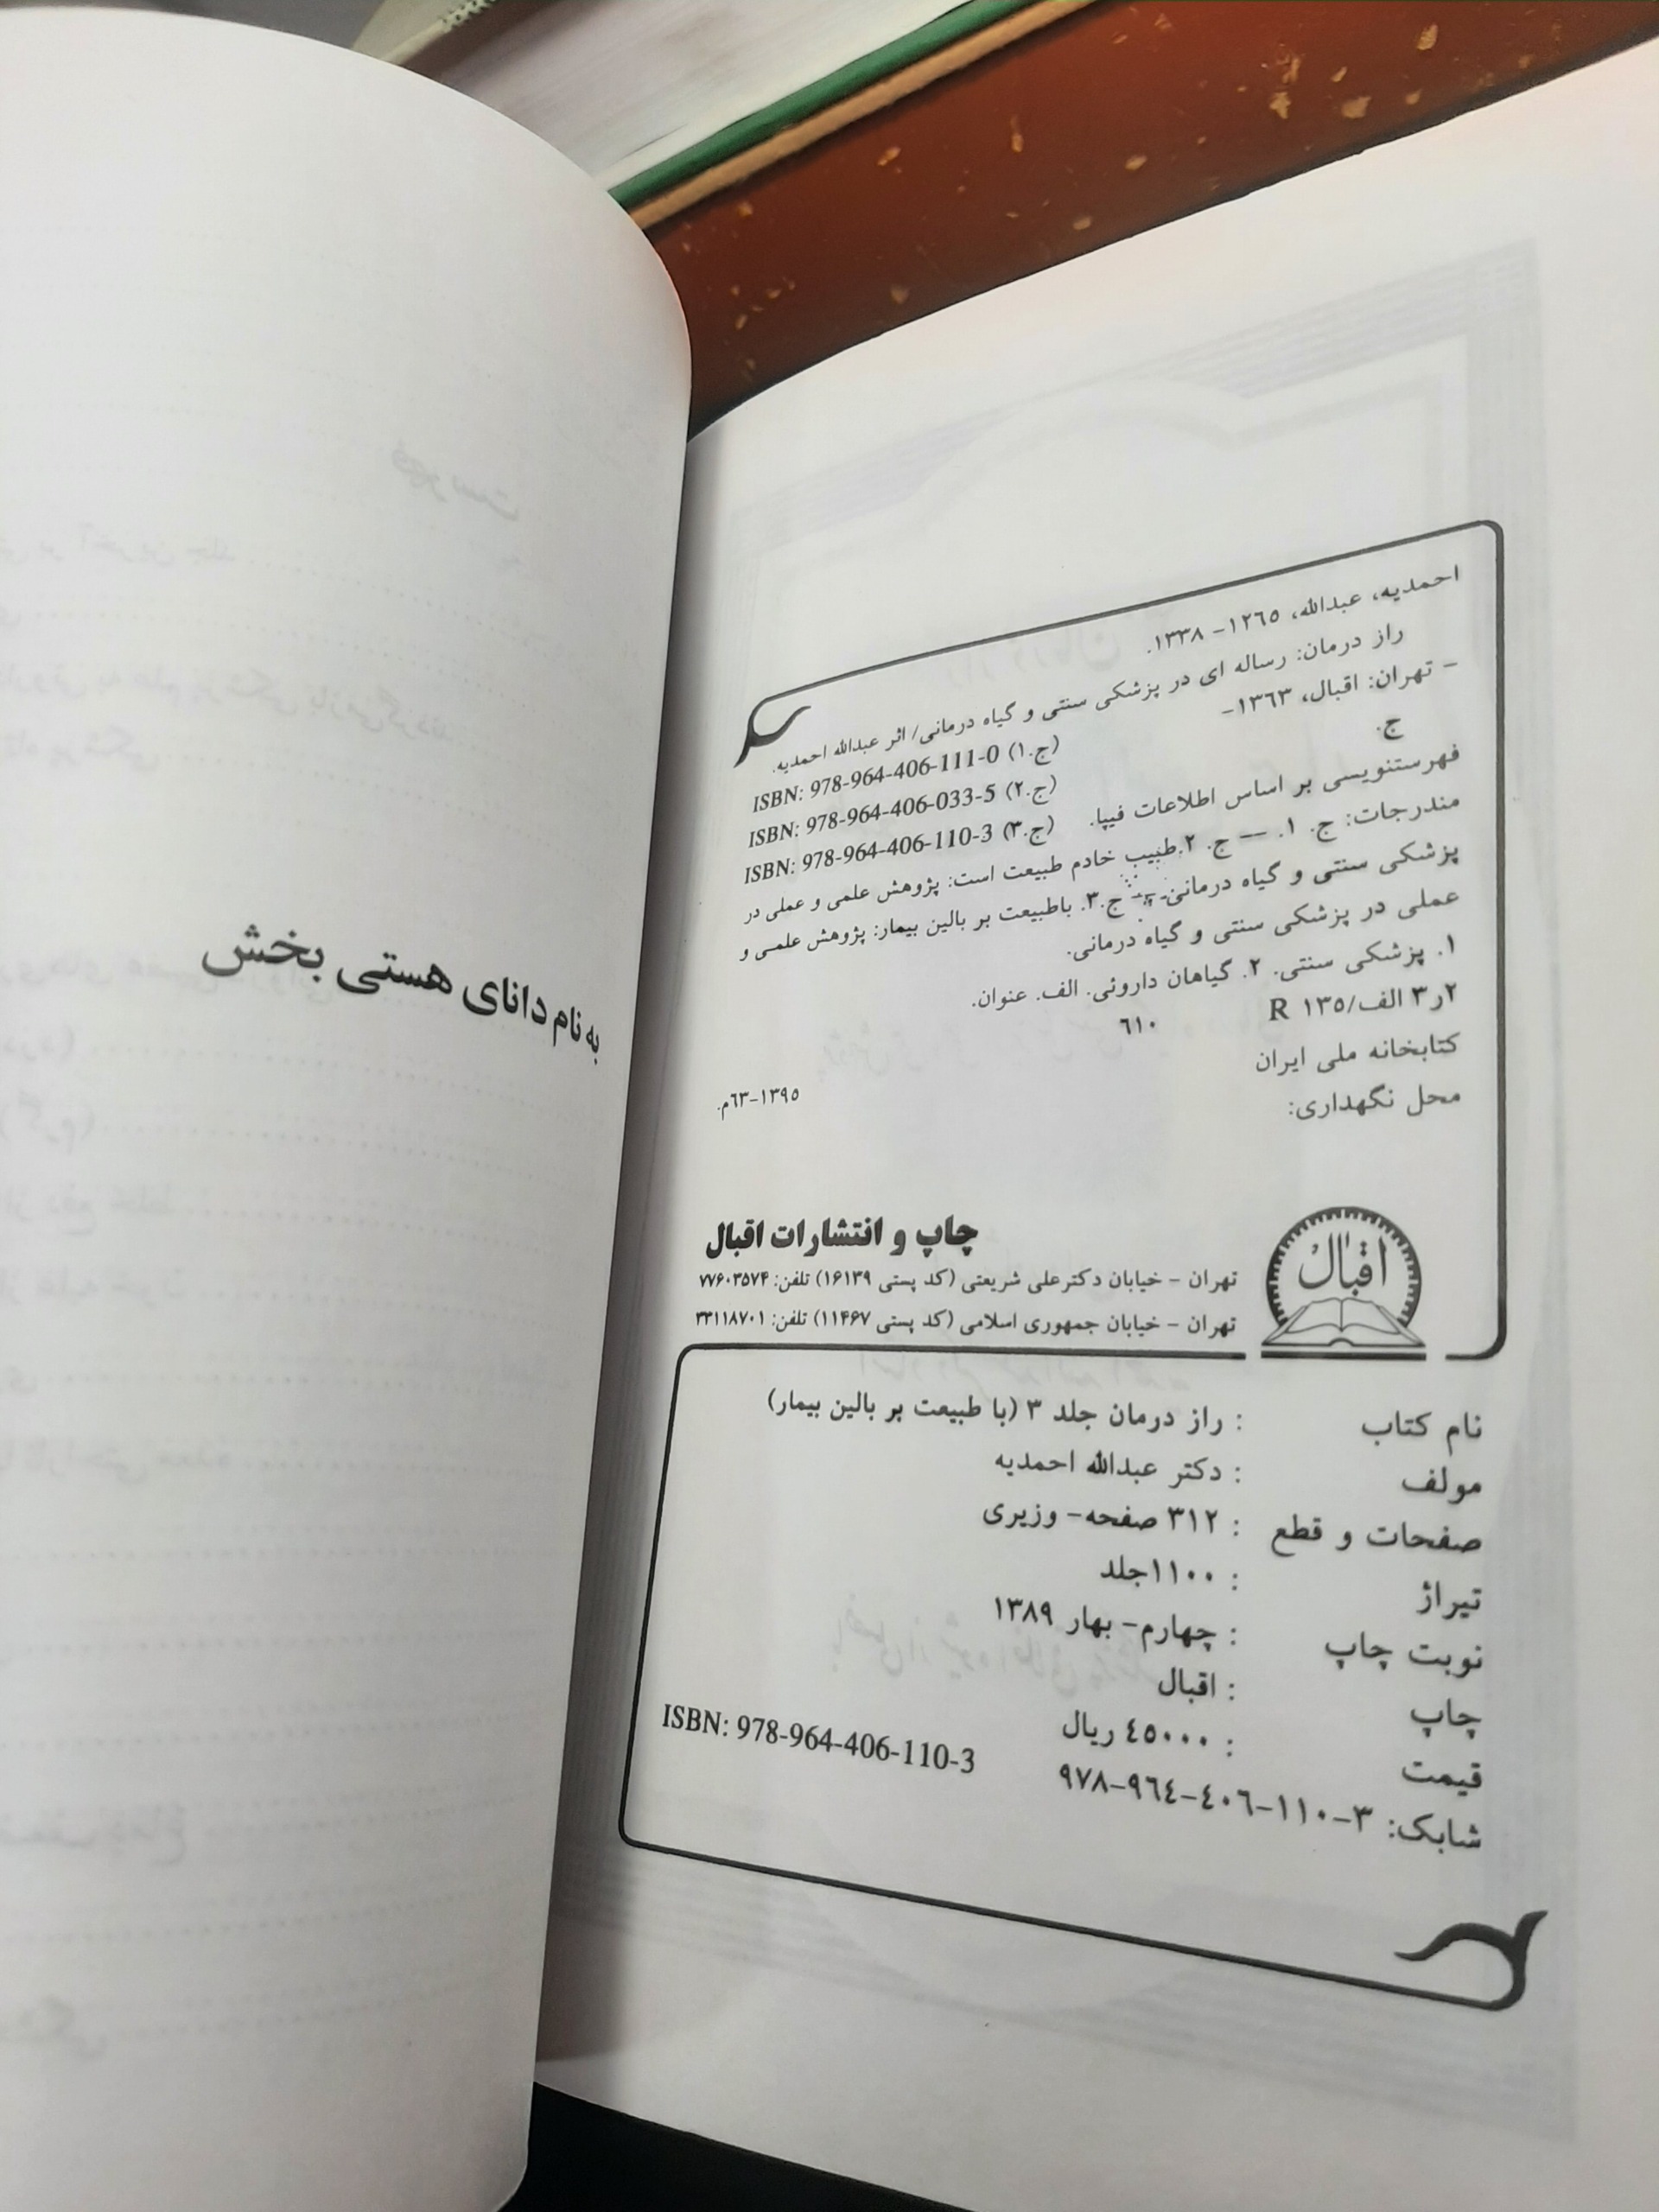 احمدیه، عبدالله، ۱۲٦٥ - ۱۳۳۸.
راز درمان: رساله ای در پزشکی سنتی و گیاه درمانی/ اثر عبدالله احمدیه.
- تهران: اقبال، ۱۳٦۳-
ج.
ISBN: 978-964-406-111-0 (ج.۱)
ISBN: 978-964-406-033-5 (ج.۲)
ISBN: 978-964-406-110-3 (ج.۳)
فهرستنویسی بر اساس اطلاعات فیپا.
مندرجات: ج. ۱. — ج. ۲.طبیب خادم طبیعت است: پژوهش علمی و عملی در
پزشکی سنتی و گیاه درمانی.-- ج.۳. باطبیعت بر بالین بیمار: پژوهش علمی و
عملی در پزشکی سنتی و گیاه درمانی.
۱. پزشکی سنتی. ۲. گیاهان داروئی. الف. عنوان.
۲ر۳ الف/۱۳٥ R
٦۱۰
کتابخانه ملی ایران
۱۳۹٥-٦۳م.
محل نگهداری:
اقبال
چاپ و انتشارات اقبال
تهران - خیابان دکترعلی شریعتی (کد پستی ۱۶۱۳۹) تلفن: ۷۷۶۰۳۵۷۴
تهران - خیابان جمهوری اسلامی (کد پستی ۱۱۴۶۷) تلفن: ۳۳۱۱۸۷۰۱
نام کتاب : راز درمان جلد ۳ (با طبیعت بر بالین بیمار)
مولف : دکتر عبدالله احمدیه
صفحات و قطع : ۳۱۲ صفحه- وزیری
تیراژ : ۱۱۰۰جلد
نوبت چاپ : چهارم- بهار ۱۳۸۹
چاپ : اقبال
قیمت : ٤٥۰۰۰ ریال
شابک: ۳-۱۱۰-٤۰٦-۹٦٤-۹۷۸ ISBN: 978-964-406-110-3
به نام دانای هستی بخش